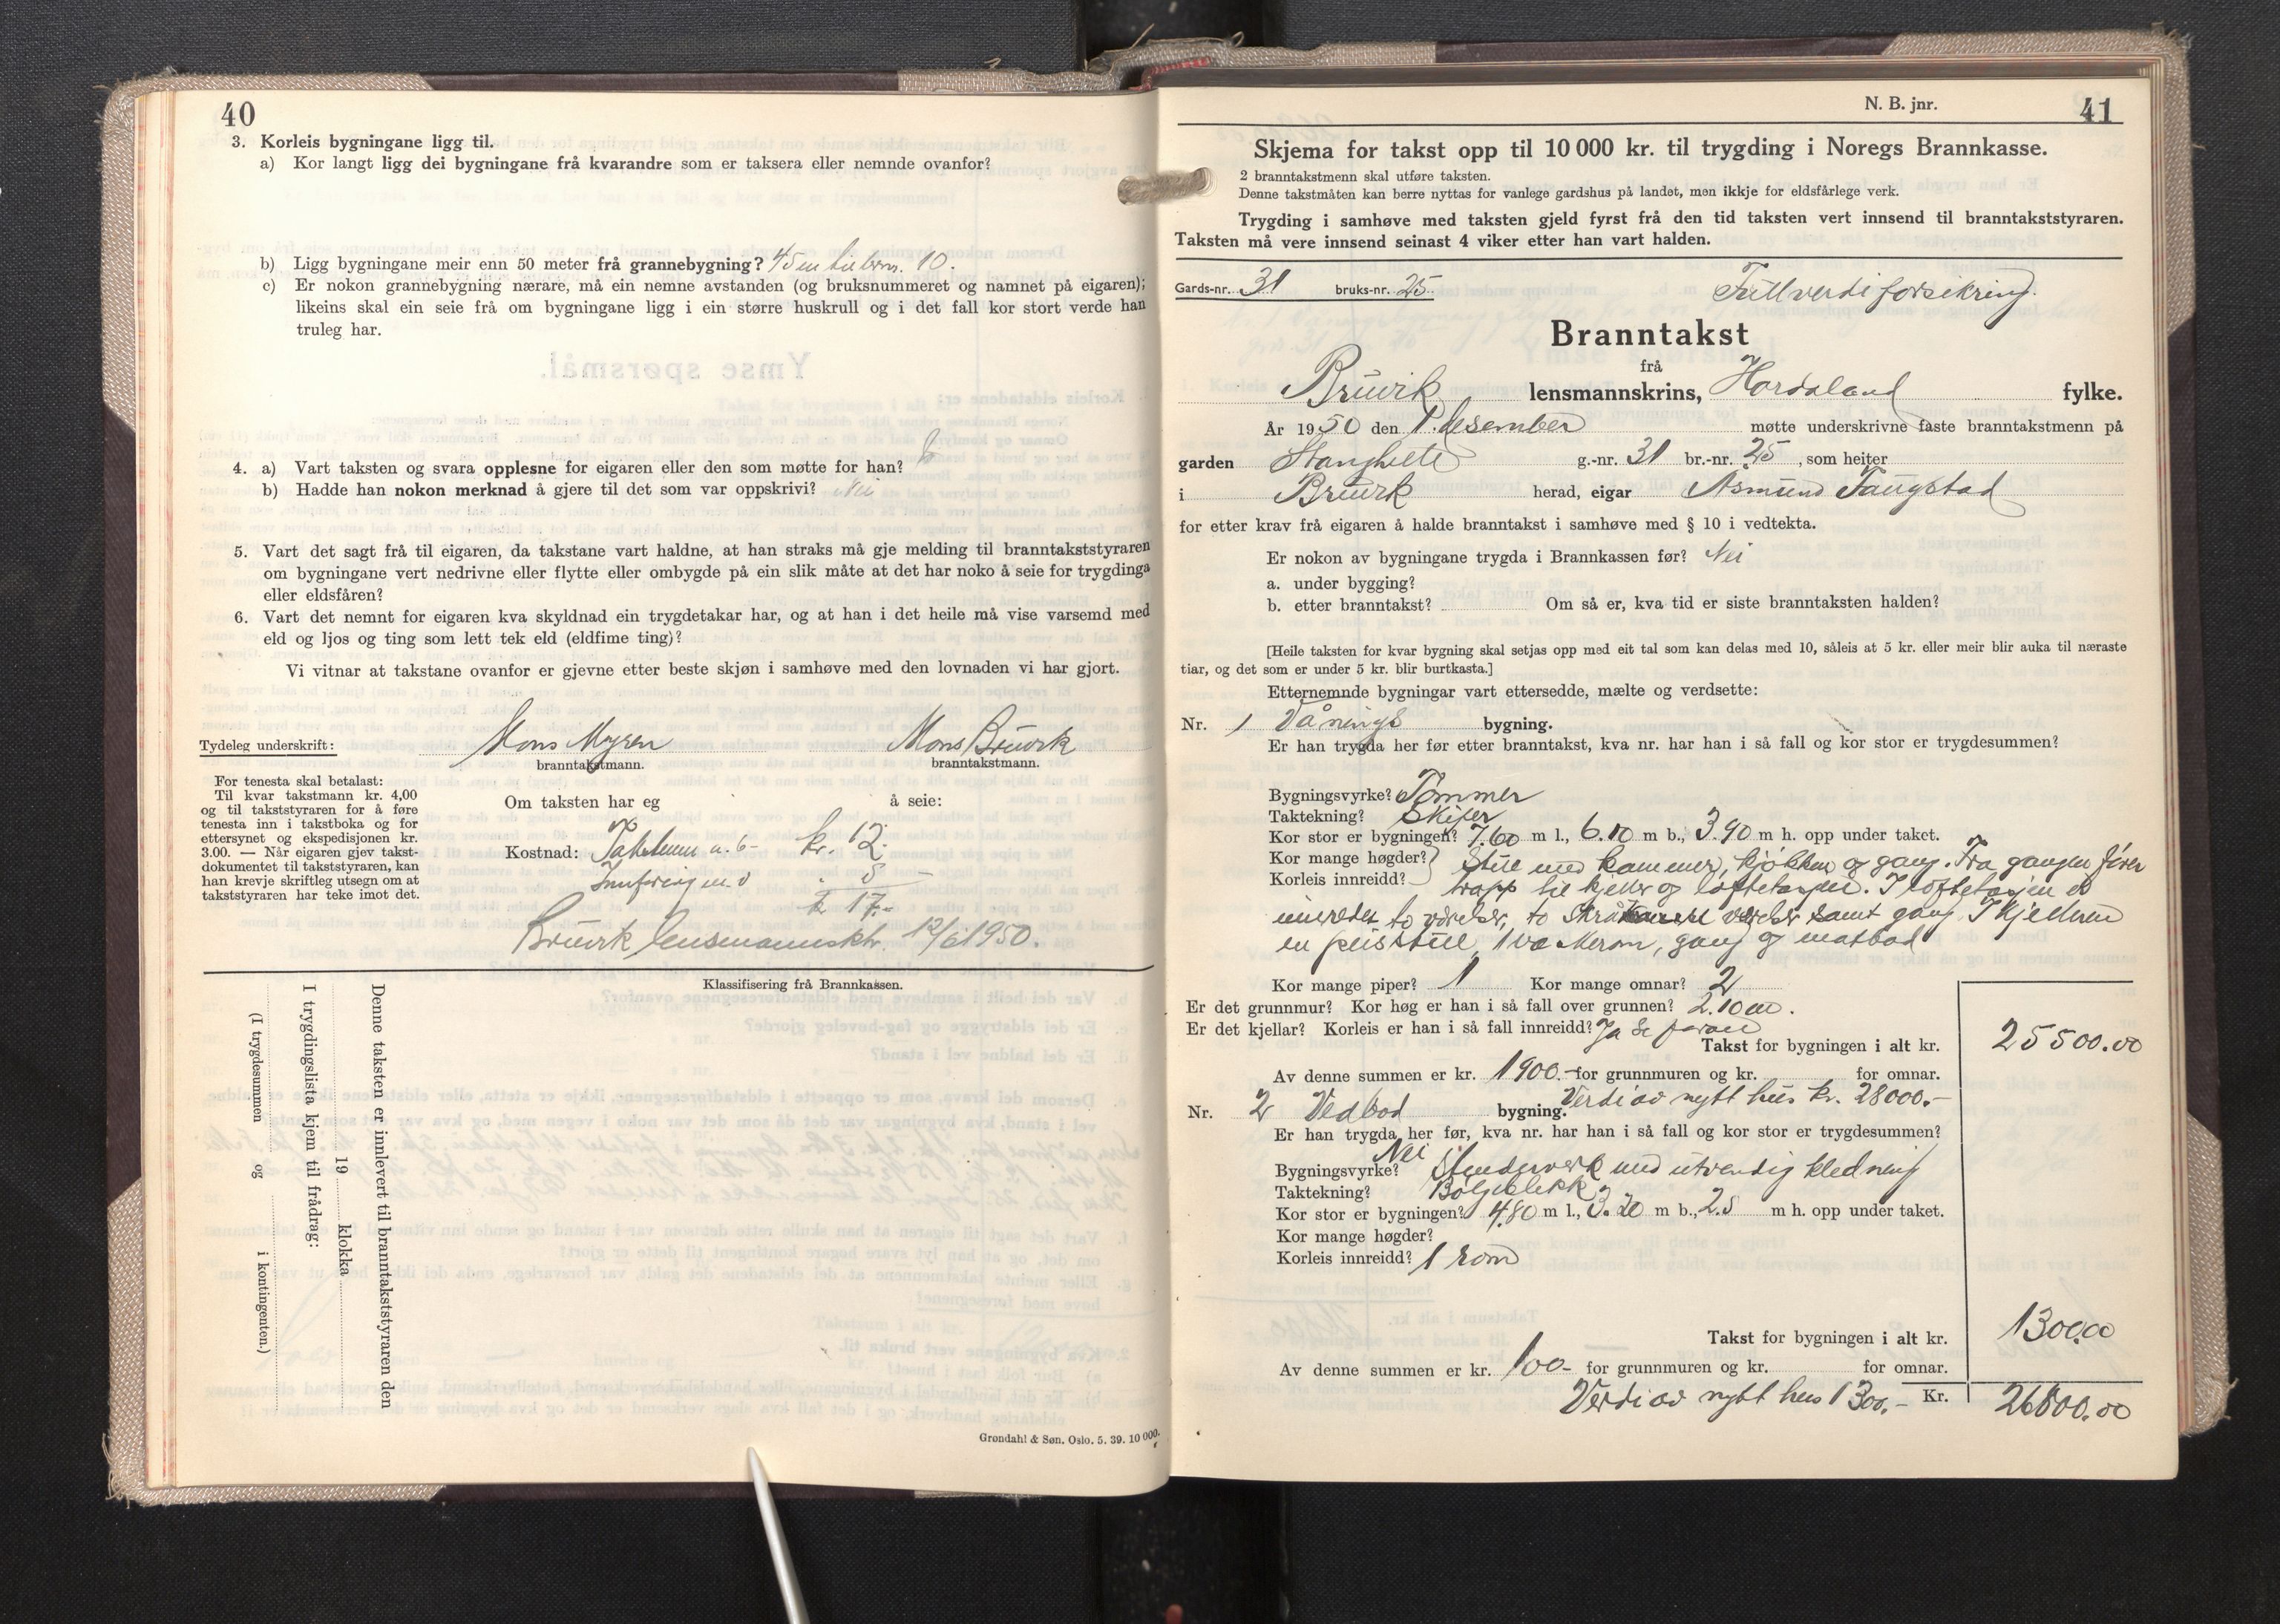 40
3. Korleis bygningane ligg til.
a) Kor langt ligg dei bygningane frå kvarandre som er taksera eller nemnde ovanfor?
b) Ligg bygningane meir enn 50 meter frå grannebygning? 45 m til brnr. 10.
c) Er nokon grannebygning nærare, må ein nemne avstanden (og bruksnummeret og namnet på eigaren);
likeins skal ein seie frå om bygningane ligg i ein større huskrull og i det fall kor stort verde han
truleg har.
4. a) Vart taksten og svara opplesne for eigaren eller den som møtte for han?
b) Hadde han nokon merknad å gjere til det som var oppskrivi? Nei
5. Vart det sagt frå til eigaren, da takstane vart haldne, at han straks må gje melding til branntakststyraren
om bygningane vert nedrivne eller flytte eller ombygde på ein slik måte at det har noko å seie for trygdinga
eller eldsfåren?
6. Vart det nemnt for eigaren kva skyldnad ein trygdetakar har, og at han i det heile må vise varsemd med
eld og ljos og ting som lett tek eld (eldfime ting)?
Vi vitnar at takstane ovanfor er gjevne etter beste skjøn i samhøve med den lovnaden vi har gjort.
Tydeleg underskrift: Mons Myren Mons Bruvik
branntakstmann. branntakstmann.
For tenesta skal betalast:
Til kvar takstmann kr. 4,00
og til takststyraren for å føre
tenesta inn i takstboka og for
ettersynet og ekspedisjonen kr.
3.00. — Når eigaren gjev takst-
dokumentet til takststyraren, kan
han krevje skriftleg utsegn om at
takststyraren har teke imot det.
Om taksten har eg å seie:
Kostnad: Takstmenn a. 6- kr. 12.
Innføring m.v. 5 -
kr. 17.-
Bruvik lensmannsktr. 12/6 1950.
Klassifisering frå Brannkassen.
Denne taksten er innlevert til branntakststyraren den
19 klokka
I trygdingslista kjem til frådrag:
(I trygdesummen og i kontingenten.)
Grøndahl & Søn. Oslo. 5. 39. 10 000.
N. B. jnr. 41
Skjema for takst opp til 10 000 kr. til trygding i Noregs Brannkasse.
2 branntakstmenn skal utføre taksten.
Denne takstmåten kan berre nyttas for vanlege gardshus på landet, men ikkje for eldsfårlege verk.
Trygding i samhøve med taksten gjeld fyrst frå den tid taksten vert innsend til branntakststyraren.
Taksten må vere innsend seinast 4 viker etter han vart halden.
Gards-nr. 31 bruks-nr. 25 Fullverdiforsikring.
Branntakst
frå
Bruvik lensmannskrins, Hordaland fylke.
År 1950 den 1. desember møtte underskrivne faste branntakstmenn på
garden Stanghelle g.-nr. 31 br.-nr. 25, som heiter
i Bruvik herad, eigar Asmund Fangstad
for etter krav frå eigaren å halde branntakst i samhøve med § 10 i vedtekta.
Er nokon av bygningane trygda i Brannkassen før? Nei
a. under bygging?
b. etter branntakst? Om så er, kva tid er siste branntaksten halden?
[Heile taksten for kvar bygning skal setjas opp med eit tal som kan delas med 10, såleis at 5 kr. eller meir blir auka til næraste
tiar, og det som er under 5 kr. blir burtkasta.]
Etternemnde bygningar vart ettersedde, mælte og verdsette:
Nr. 1 Vånings bygning.
Er han trygda her før etter branntakst, kva nr. har han i så fall og kor stor er trygdesummen?
Bygningsvyrke? Tømmer
Taktekning? Skifer
Kor stor er bygningen? 7.60 m l., 6.10 m b., 3.90 m h. opp under taket.
Kor mange høgder? Stue med kammer, kjøkken og gang. Fra gangen fører
Korleis innreidd? trapp til kjeller og loftetasjen. I loftetasjen er
innredet to værelser, to skrå værelser samt gang. I kjelleren
en peisstue, 1 vaskerom, gang og matbod
Kor mange piper? 1 Kor mange omnar? 2
Er det grunnmur? Kor høg er han i så fall over grunnen? 2.10 m.
Er det kjellar? Korleis er han i så fall innreidd? Ja Se foran
Takst for bygningen i alt kr. 25500.00
Av denne summen er kr. 1900.- for grunnmuren og kr. for omnar.
Verdi av nytt hus kr. 28000.-
Nr. 2 Vedbod bygning.
Er han trygda her før, kva nr. har han i så fall og kor stor er trygdesummen?
Nei
Bygningsvyrke? Stenderverk med utvendig kledning
Taktekning? Bølgeblekk
Kor stor er bygningen? 4.80 m l., 3.20 m b., 2.5 m h. opp under taket.
Kor mange høgder?
Korleis innreidd? 1 rom
Takst for bygningen i alt kr. 1300.00
Av denne summen er kr. 100- for grunnmuren og kr. for omnar.
Verdi av nytt hus 1300.- Kr. 26800.00